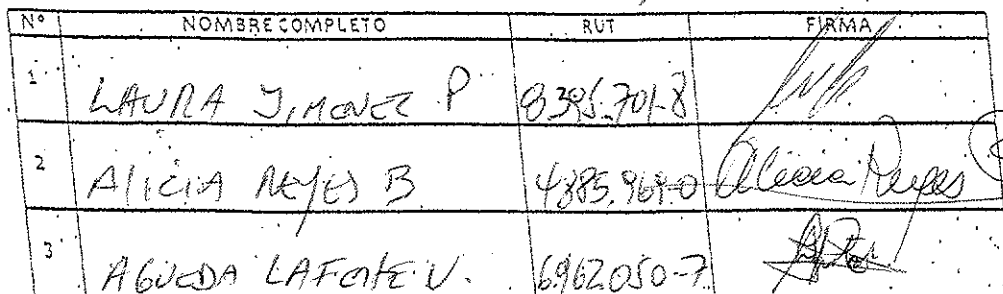 Nº NOMBRE COMPLETO RUT FIRMA
1 LAURA JIMENEZ P 8.395.701-8
2 ALICIA REYES B 4.885.969-0 Alicia Reyes
3 AGUEDA LAFONTE V. 6.962.050-7